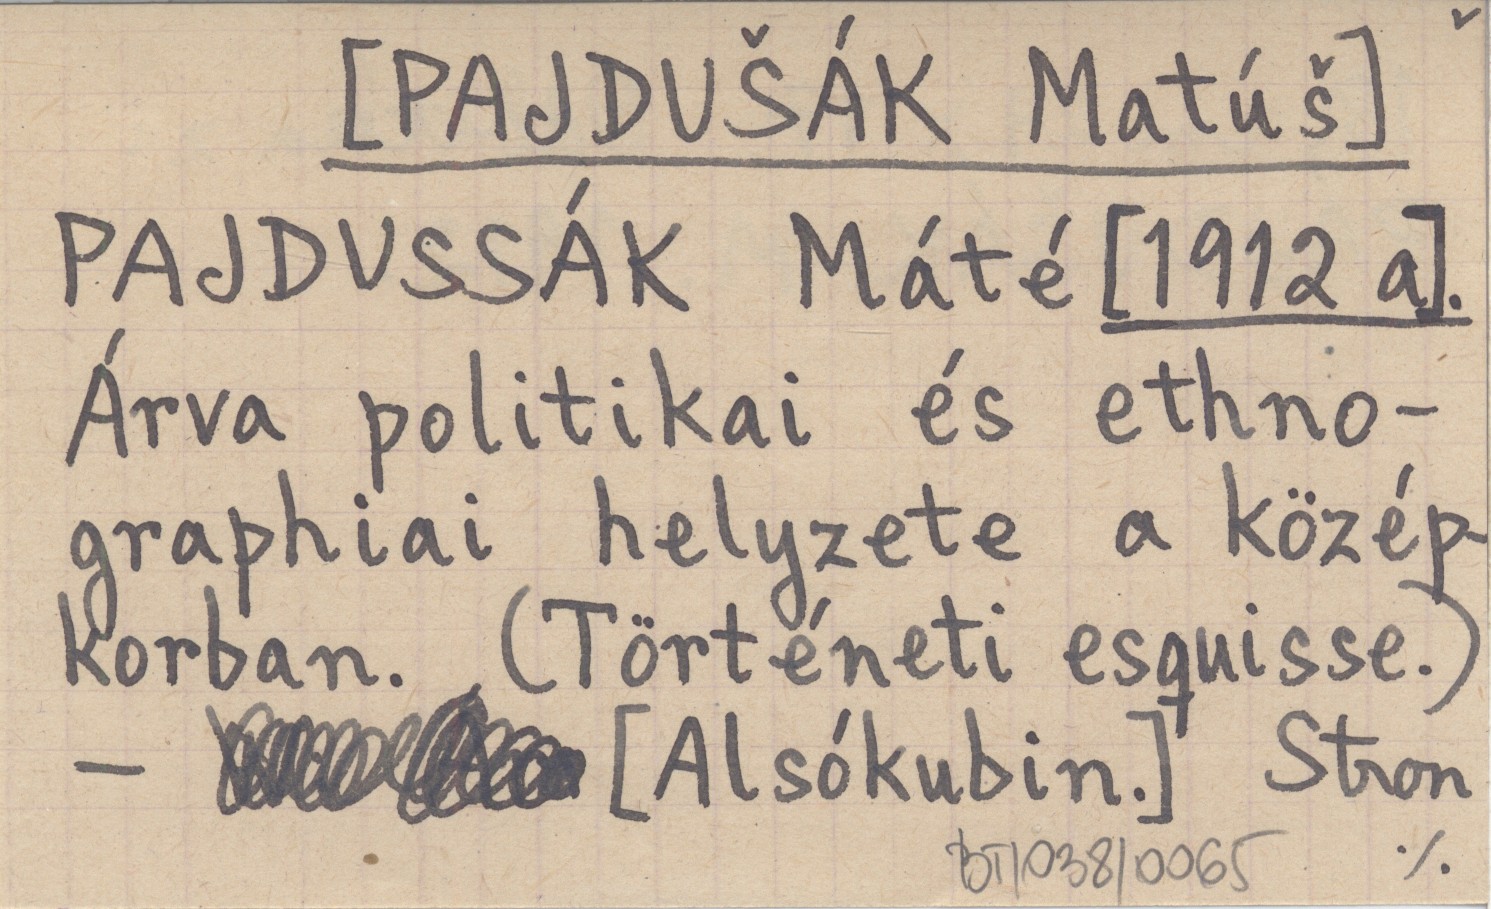 [PAJDUŠÁK Matúš]
PAJDUSSÁK Máté [1912 a].
Árva politikai és ethno-
graphiai helyzete a közép-
korban. (Történeti esquisse.)
– [Alsókubin.] Stron
BT/038/0065 ./.